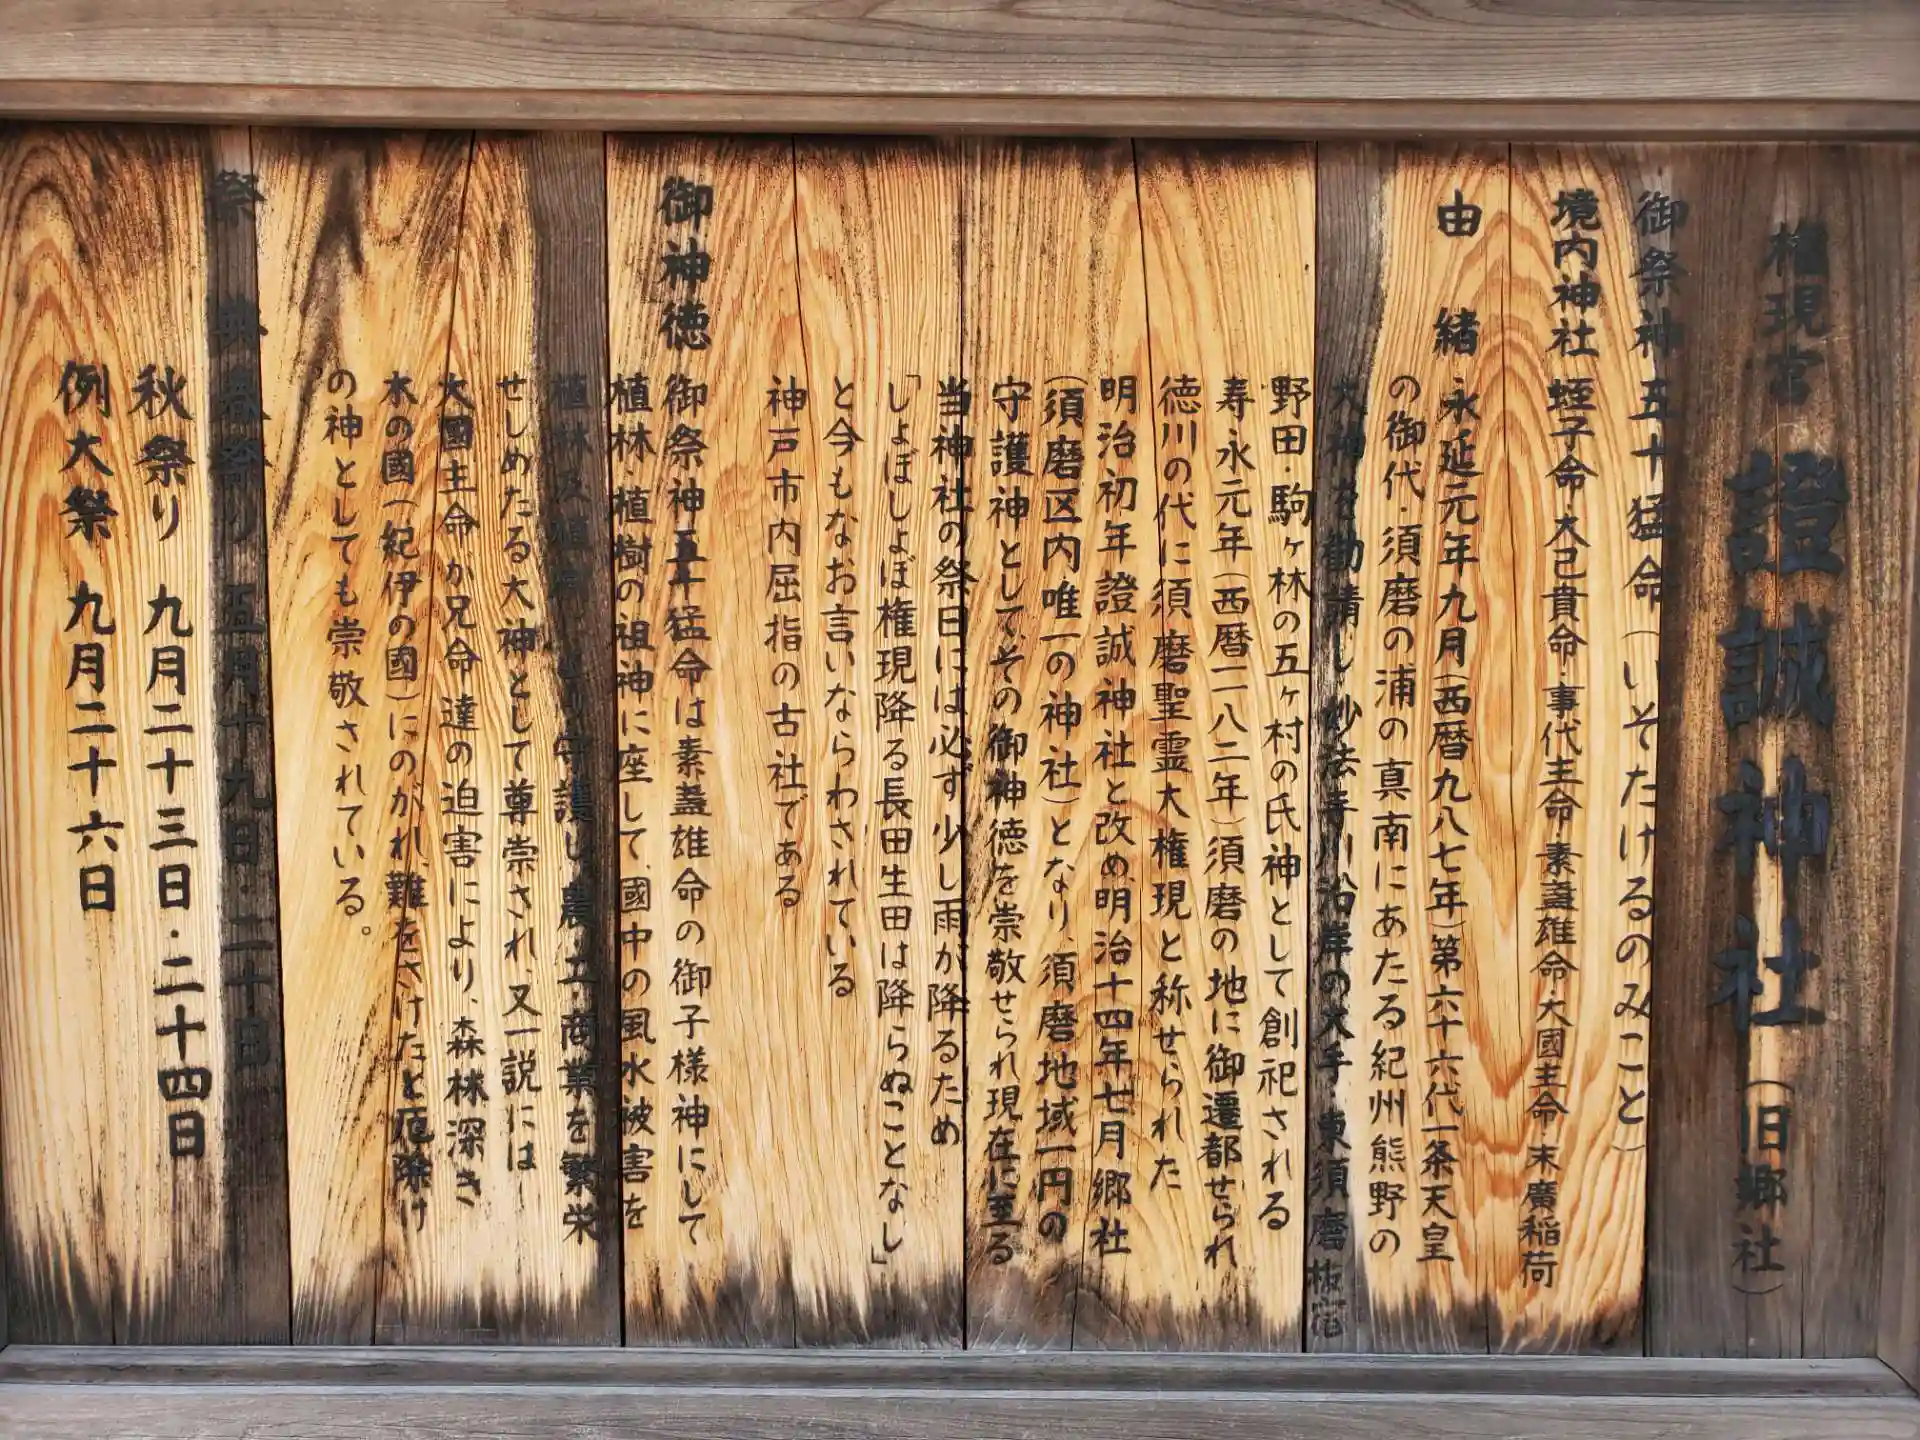 権現宮 證誠神社 (旧郷社)
御祭神 五十猛命(いそたけるのみこと)
境内神社 蛭子命・大己貴命・事代主命・素盞雄命・大國主命 末廣稲荷
由緒 永延元年九月(西暦九八七年)第六十六代一条天皇
の御代・須磨の浦の真南にあたる紀州熊野の
大神を勧請し 妙法寺川沿岸の大手・東須磨 板宿
野田・駒ヶ林の五ヶ村の氏神として創祀される
寿永元年(西暦一一八二年)須磨の地に御遷都せられ
徳川の代に須磨聖霊大権現と称せられた
明治初年證誠神社と改め、明治十四年七月郷社
(須磨区内唯一の神社)となり、須磨地域一円の
守護神として、その御神徳を崇敬せられ現在に至る
当神社の祭日には必ず少し雨が降るため
「しょぼしょぼ権現降る長田生田は降らぬことなし」
と今もなお言いならわされている
神戸市内屈指の古社である
御神徳 御祭神五十猛命は素盞雄命の御子様神にして
植林・植樹の祖神に座して、國中の風水被害を
植林及植 守護し、農工・商業を繁栄
せしめたる大神として尊崇され、又一説には
大國主命が兄命達の迫害により、森林深き
木の國(紀伊の國)にのがれ、難をさけたと厄除け
の神としても崇敬されている。
祭典 春祭り 五月十九日・二十日
秋祭り 九月二十三日・二十四日
例大祭 九月二十六日